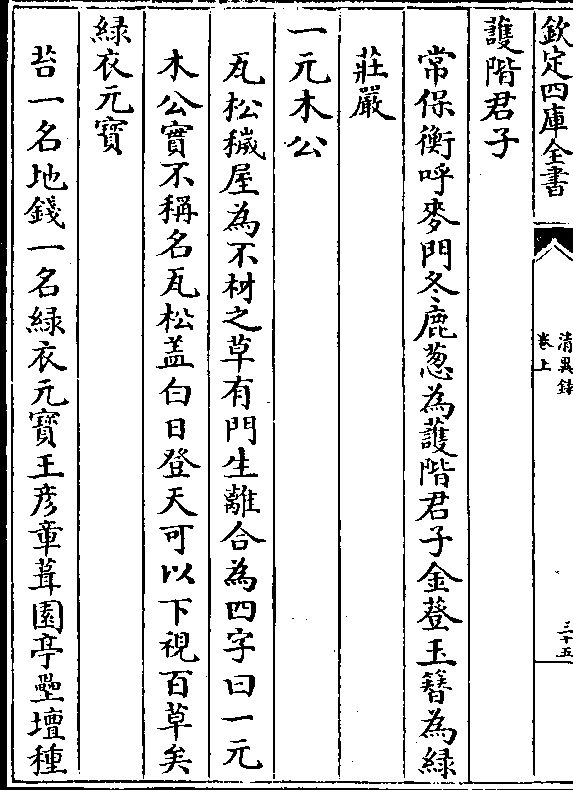 欽定四庫全書
清異錄
卷上
三十五
護階君子
常保衡呼麥門冬鹿葱為護階君子金蓥玉簪為緑
莊嚴
一元木公
瓦松穢屋為不材之草有門生離合為四字曰一元
木公實不稱名瓦松盖白日登天可以下視百草矣
緑衣元寳
苔一名地錢一名緑衣元寳王彦章葺園亭壘壇種